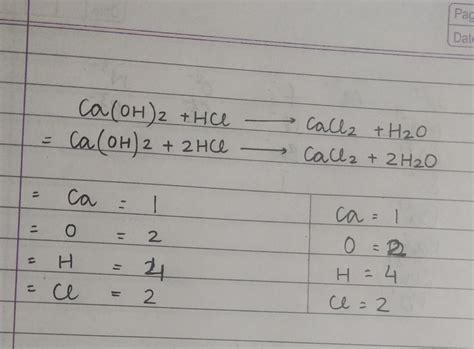 Pag
Date
Ca(OH)2 + HCl ⟶ CaCl2 + H2O
= Ca(OH)2 + 2HCl ⟶ CaCl2 + 2H2O
= Ca = 1 Ca = 1
= O = 2 O = 2
= H = 4 H = 4
= Cl = 2 Cl = 2